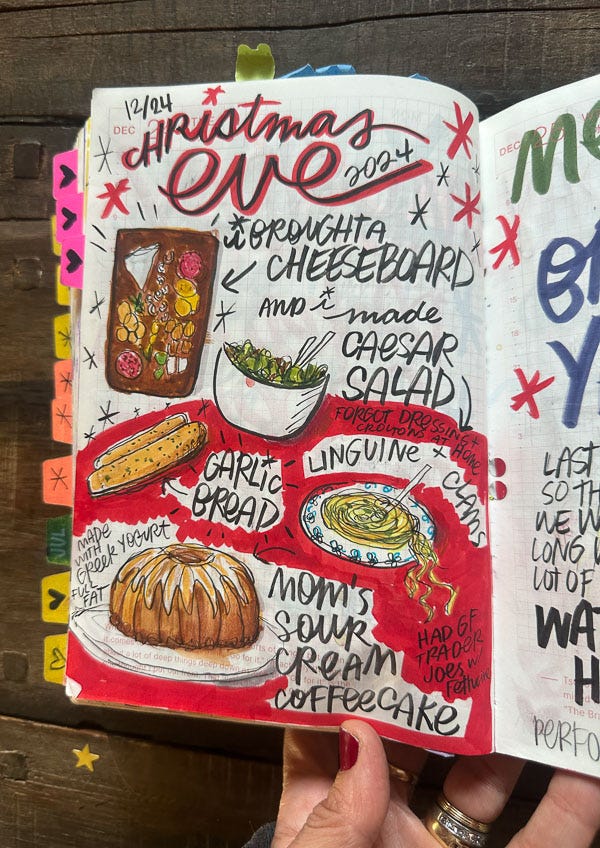 12/24
DEC
CHRistmas
eve 2024
i BROUGHT A
CHEESEBOARD
AND i made
CAESAR
SALAD
FORGOT DRESSING +
CROUTONS AT HOME
LINGUINE x
CLAMS
GARLiC
BREAD
MADE
WITH
GREEK YOGURT
FULL
FAT
MOM'S
SOUR
CREAM
COFFEECAKE
HAD GF
TRADER
JOES W/
JUL
DEC
LAST
SO TH
WE W
LONG
LOT OF
WA
H
PERFO